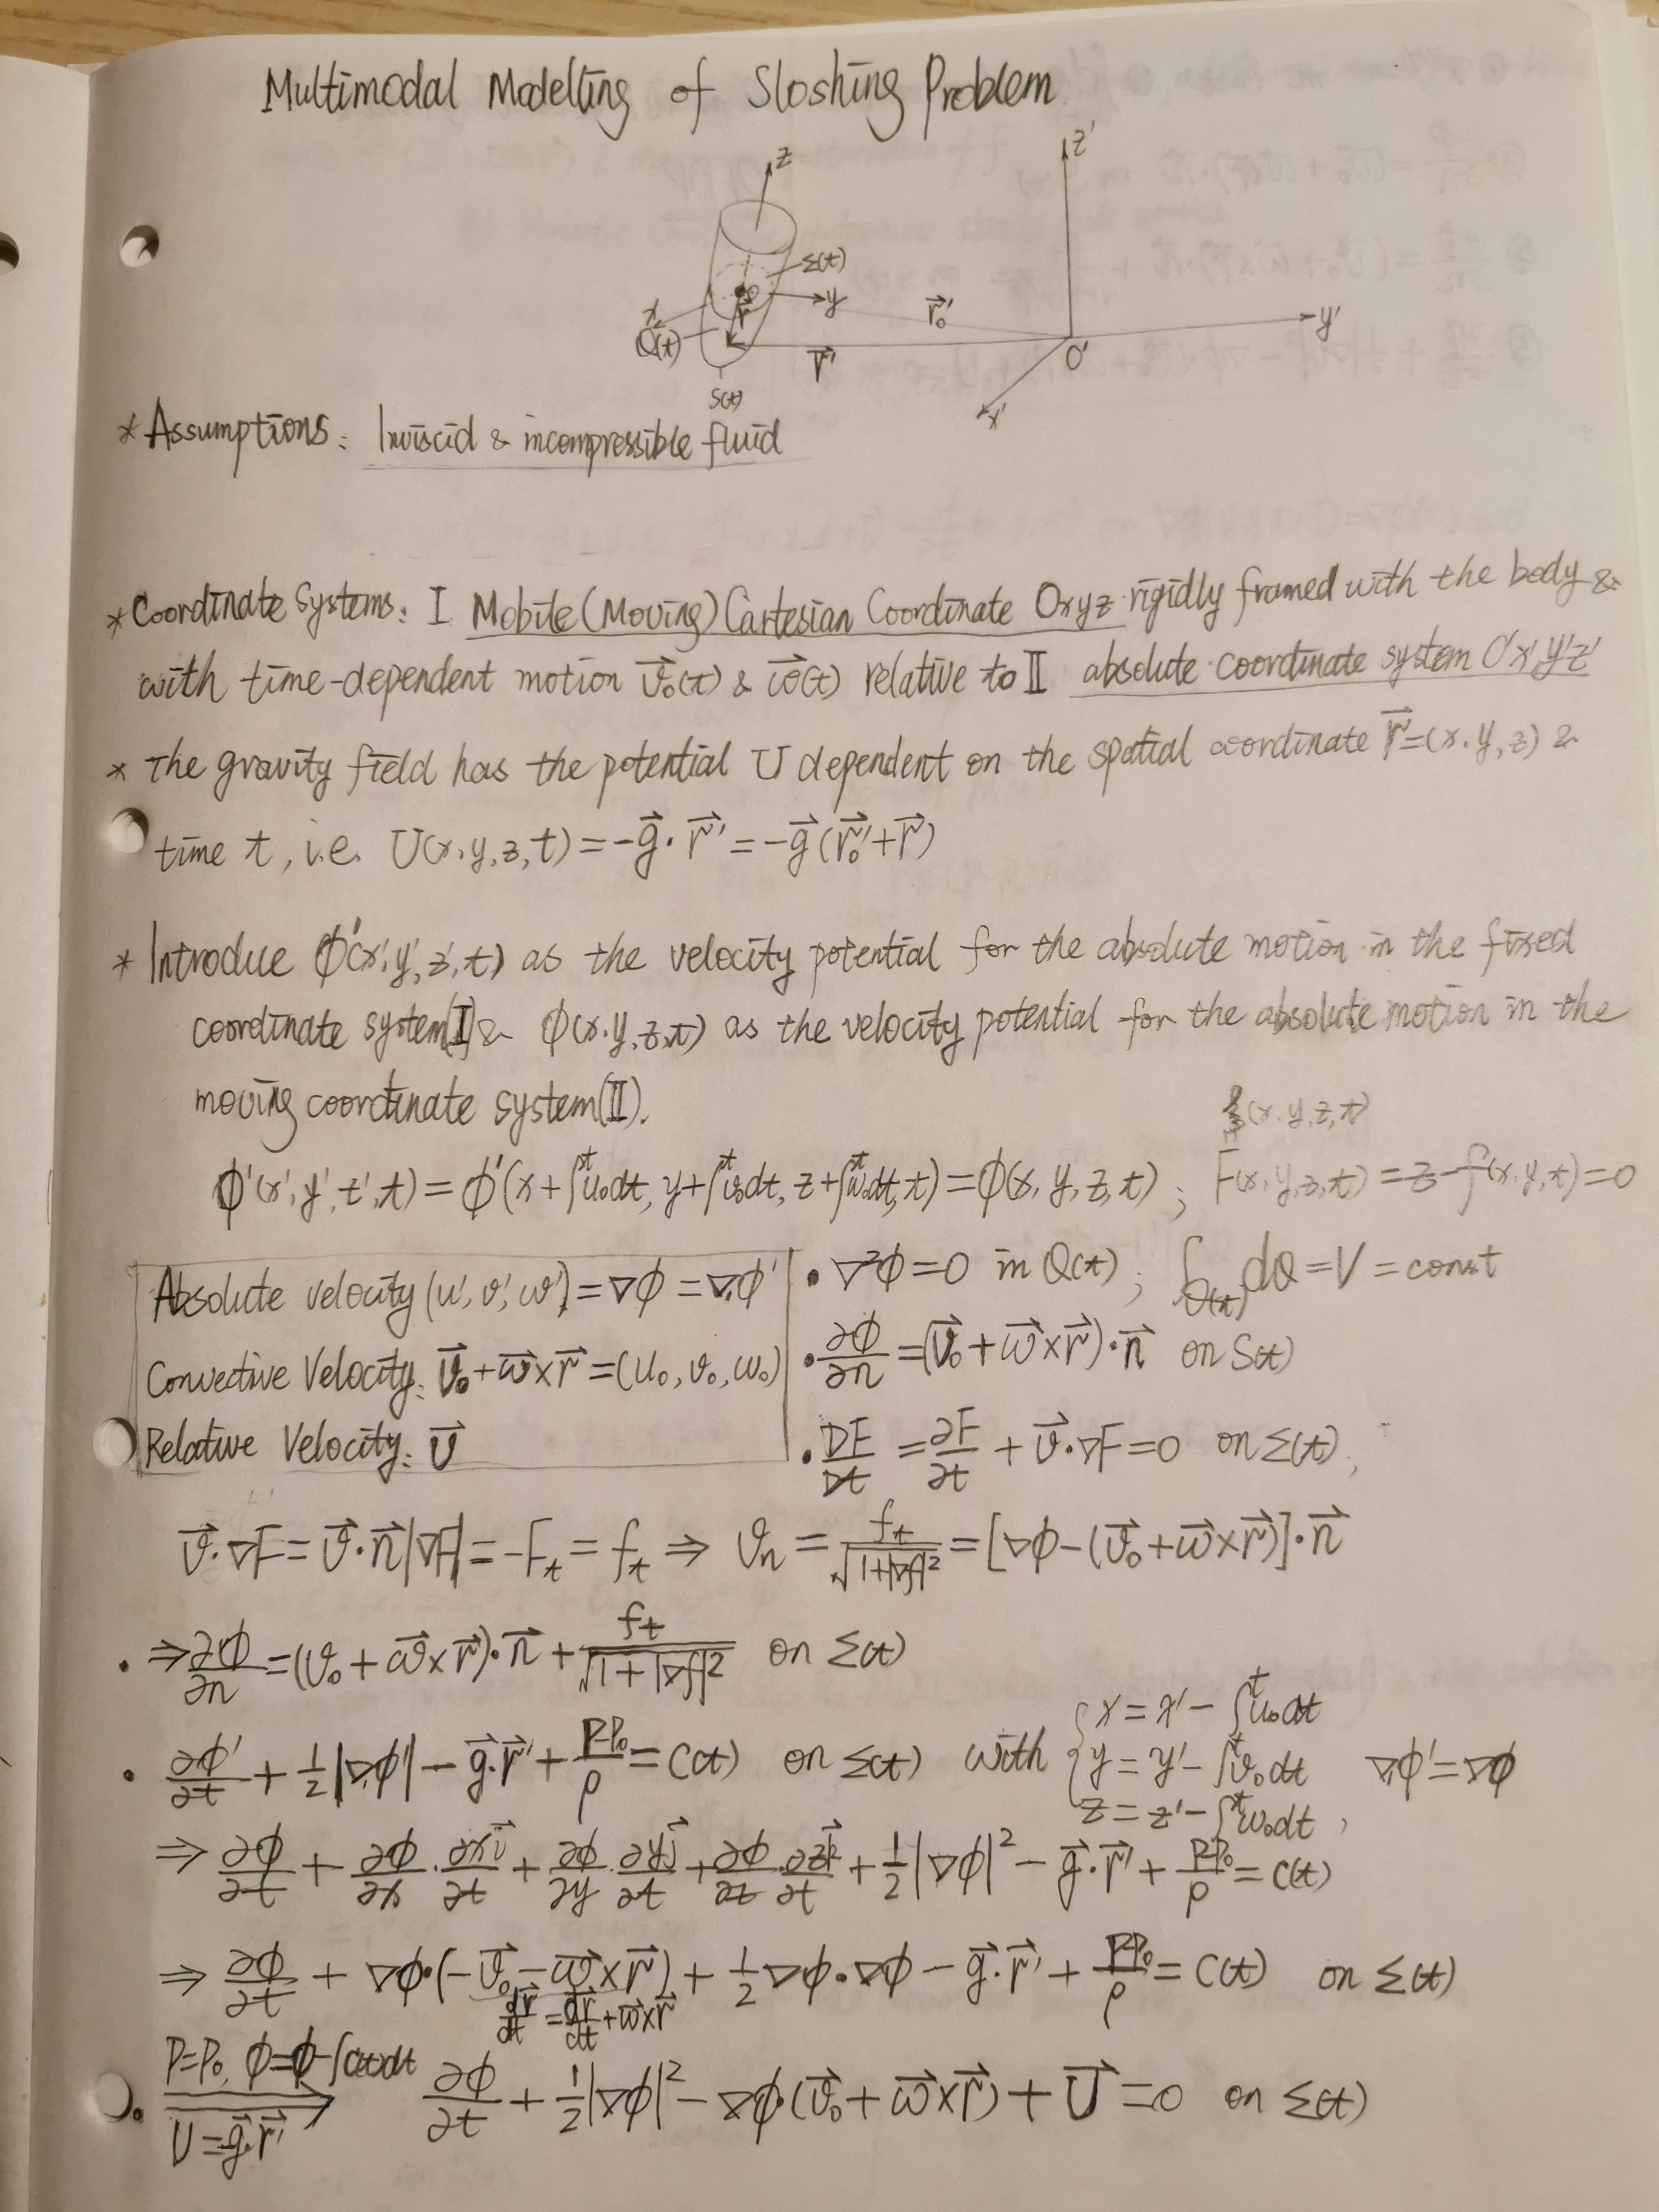 Multimodal Modelling of Sloshing Problem
z z'
Σ(t)
o y r⃗₀' y'
x r⃗
Q(t) r⃗' O'
S(t) x'
* Assumptions: Inviscid & incompressible fluid
* Coordinate Systems: I Mobile (Moving) Cartesian Coordinate Oxyz rigidly framed with the body &
with time-dependent motion v⃗₀(t) & ω⃗(t) relative to II absolute coordinate system O'x'y'z'
* The gravity field has the potential U dependent on the spatial coordinate r⃗=(x.y,z) &
time t, i.e. U(x,y,z,t) = -g⃗·r⃗' = -g⃗(r⃗₀'+r⃗)
* Introduce ϕ'(x',y',z',t) as the velocity potential for the absolute motion in the fixed
coordinate system(I)& ϕ(x.y,z,t) as the velocity potential for the absolute motion in the
moving coordinate system(II).
(x.y,z,t)
ϕ'(x',y',z',t) = ϕ'(x+∫ᵗu₀dt, y+∫ᵗv₀dt, z+∫ᵗw₀dt, t) = ϕ(x,y,z,t) ; F(x,y,z,t) = z-f(x,y,t)=0
Absolute velocity (u',v',w') = ∇ϕ = ∇'ϕ' • ∇²ϕ=0 in Q(t) ; ∫_Q(t) dQ = V = const
Convective Velocity: v⃗₀+ω⃗×r⃗ = (u₀,v₀,w₀) • ∂ϕ/∂n = (v⃗₀+ω⃗×r⃗)·n⃗ on S(t)
Relative Velocity: v⃗ • DF/Dt = ∂F/∂t + v⃗·∇F = 0 on Σ(t),
v⃗·∇F = v⃗·n⃗|∇F| = -Fₜ = fₜ ⇒ vₙ = fₜ/√(1+|∇f|²) = [∇ϕ-(v⃗₀+ω⃗×r⃗)]·n⃗
• ⇒ ∂ϕ/∂n = (v₀+ω⃗×r⃗)·n⃗ + fₜ/√(1+|∇f|²) on Σ(t)
• ∂ϕ'/∂t + 1/2|∇'ϕ'| - g⃗·r⃗' + (P-P₀)/ρ = C(t) on Σ(t) with { x = x' - ∫ᵗu₀dt
y = y' - ∫ᵗv₀dt ∇'ϕ' = ∇ϕ
z = z' - ∫ᵗw₀dt ,
⇒ ∂ϕ/∂t + ∂ϕ/∂x·∂xi⃗/∂t + ∂ϕ/∂y·∂yj⃗/∂t + ∂ϕ/∂z·∂zk⃗/∂t + 1/2|∇ϕ|² - g⃗·r⃗' + (P-P₀)/ρ = C(t)
⇒ ∂ϕ/∂t + ∇ϕ·(-v⃗₀-ω⃗×r⃗) + 1/2∇ϕ·∇ϕ - g⃗·r⃗' + (P-P₀)/ρ = C(t) on Σ(t)
dr⃗/dt = dr⃗/dt + ω⃗×r⃗
P=P₀, ϕ=ϕ-∫C(t)dt
• ∂ϕ/∂t + 1/2|∇ϕ|² - ∇ϕ·(v⃗₀+ω⃗×r⃗) + U⃗ = 0 on Σ(t)
U=-g⃗·r⃗'